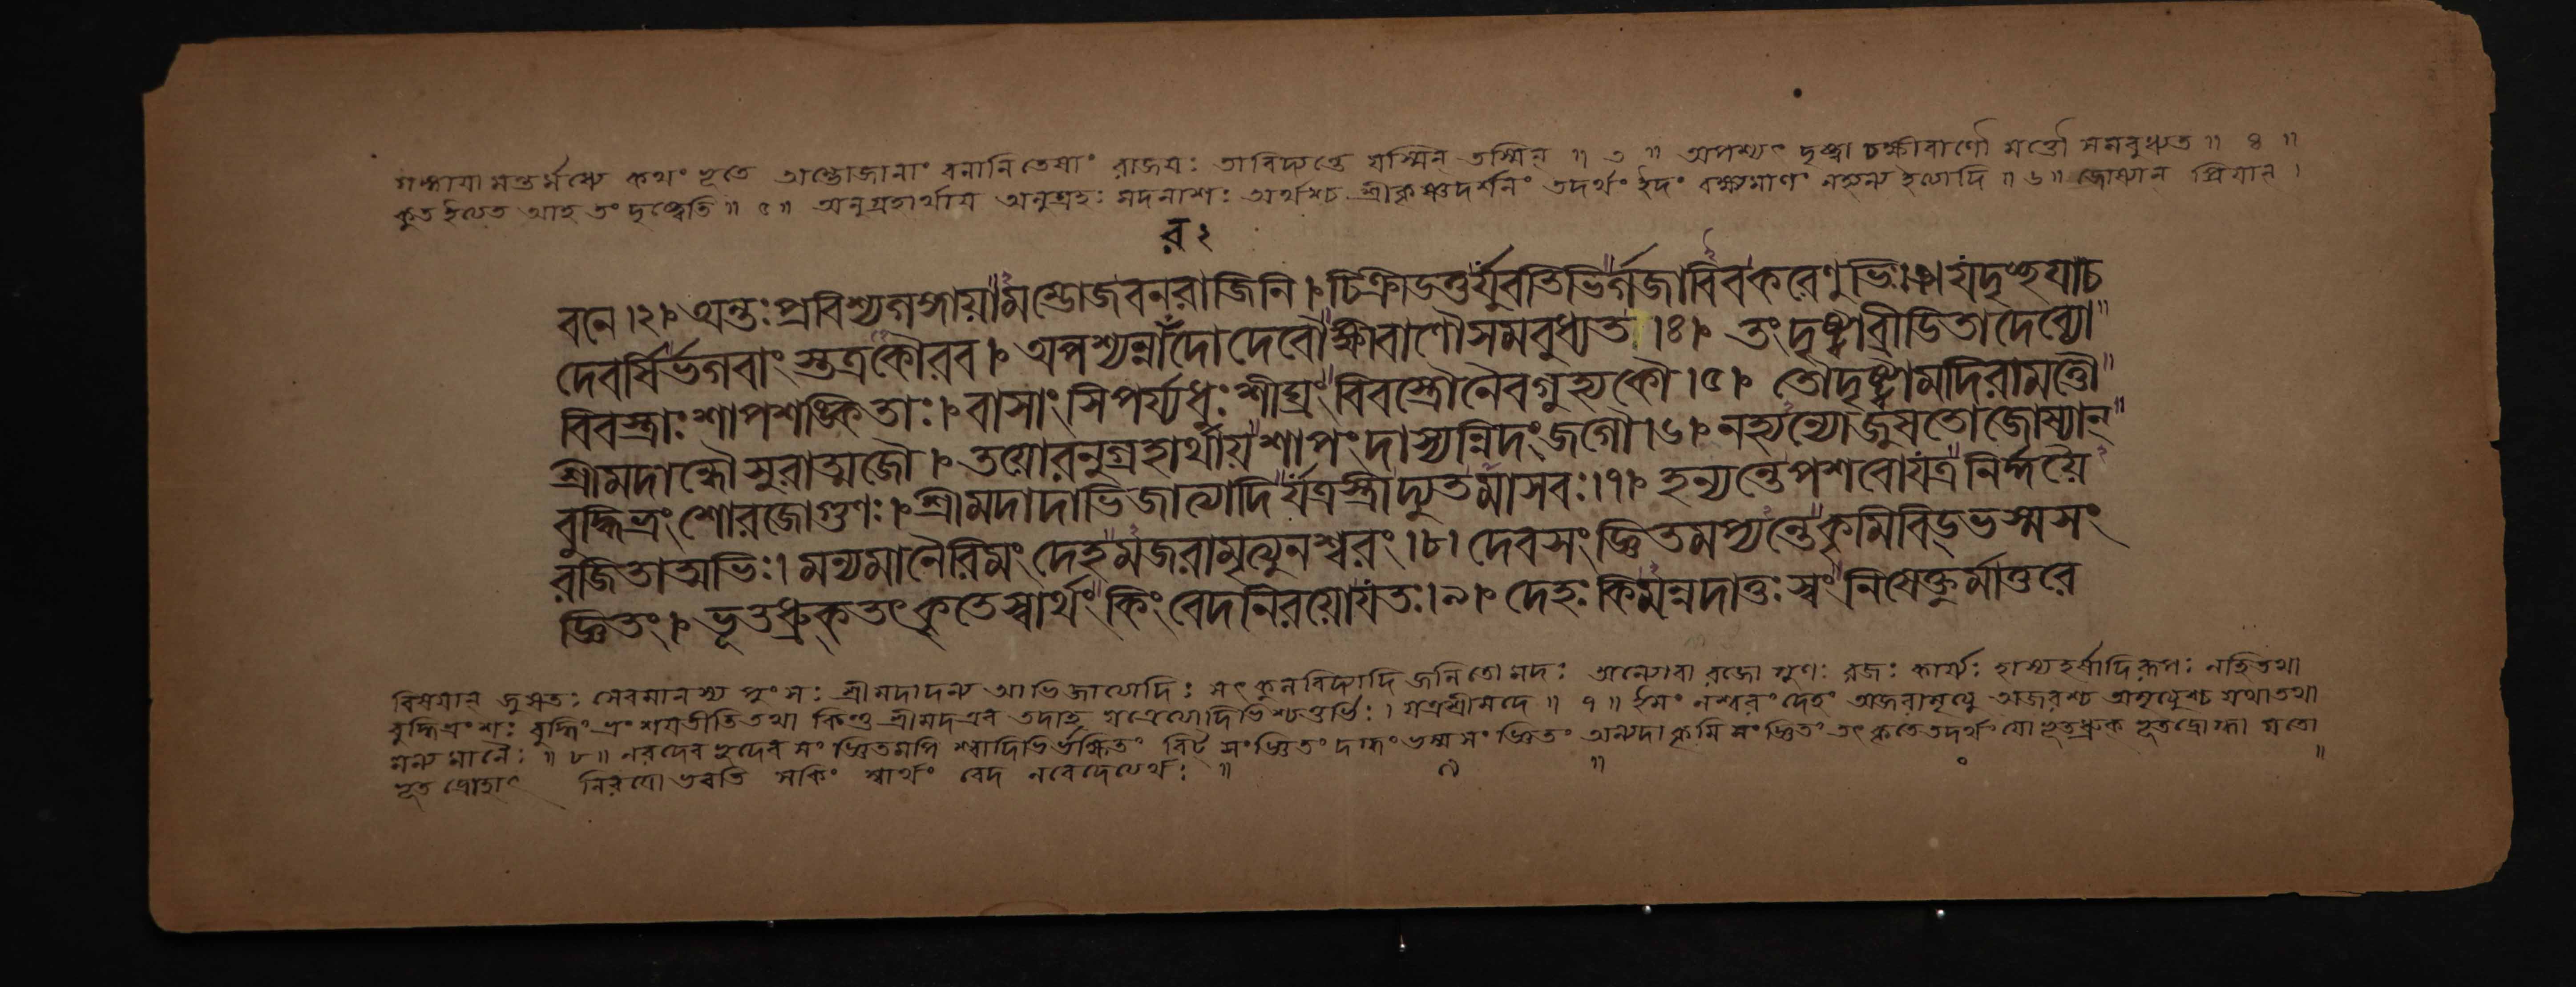 গঙ্গায়া মন্তর্মধ্যে কথং ভূতে অম্ভোজানাং বনানি তেষাং রাজয়ঃ তাবিদ্যন্তে যস্মিন্ তস্মিন্ ॥ ৩ ॥ অপশ্যৎ দৃষ্ট্বা চ ক্ষীবাণৌ মত্তৌ সমবুধ্যত ॥ ৪ ॥
কুত ইত্যেত আহ তং দৃষ্ট্বেতি ॥ ৫ ॥ অনুগ্রহার্থায় অনুগ্রহঃ মদনাশঃ অর্থশ্চ শ্রীকৃষ্ণদর্শনং তদর্থং ইদং বক্ষ্যমাণং নহ্যন্য ইত্যাদি ॥ ৬ ॥ জোষ্যান্ প্রিয়ান্ ।
ৰ ২
বনে ।২। অন্তঃ প্ৰবিশ্য গঙ্গায়ামম্ভোজবনৰাজিনি । চিক্ৰীডতুৰ্যুবতিভিৰ্গজাবিব কৰেণুভিঃ ।৩। যদৃচ্ছয়া চ
দেবৰ্ষিৰ্ভগবাংস্তত্ৰ কৌৰব । অপশ্যন্নাৰদো দেবৌ ক্ষীবাণৌ সমবুধ্যত ।৪। তং দৃষ্ট্বা ব্ৰীডিতা দেব্যো
বিবস্ত্ৰাঃ শাপশঙ্কিতাঃ । বাসাংসি পৰ্য্যধুঃ শীঘ্ৰং বিবস্ত্ৰৌ নৈব গুহ্যকৌ ।৫। তৌ দৃষ্ট্বা মদিৰামত্তৌ
শ্ৰীমদান্ধৌ সুৰাত্মজৌ । তয়োৰনুগ্ৰহাৰ্থায় শাপং দাস্যন্নিদং জগৌ ।৬। নহ্যন্যো জুষতো জোষ্যান্
বুদ্ধিভ্ৰংশো ৰজোগুণঃ । শ্ৰীমদাদাভিজাত্যাদিৰ্যত্ৰ স্ত্ৰী দ্যুতমাসবঃ ।৭। হন্যন্তে পশবো যত্ৰ নিৰ্দ্দয়ৈ
ৰজিতাত্মভিঃ । মন্যমানৈৰিমং দেহমজৰামৃত্যু নশ্বৰং ।৮। দেবসংজ্ঞিতমপ্যন্তে কৃমিবিড্ভস্মসং
জ্ঞিতং । ভূতধ্ৰুক্ তৎকৃতে স্বাৰ্থং কিং বেদ নিৰয়ো যতঃ ।৯। দেহঃ কিমন্নদাতুঃ স্বং নিষেক্তুৰ্মাতুৰে
বিষয়ান্ জুষতঃ সেবমানস্য পুংসঃ শ্রীমদাদন্য আভিজাত্যাদিঃ সৎকুলবিদ্যাদি জনিতো মদঃ অন্যোবা রজো গুণঃ রজঃ কার্য্যঃ হাস্যহর্ষাদিরূপঃ নহি তথা
বুদ্ধিভ্রংশঃ বুদ্ধিং ভ্রংশয়তীতি তথা কিন্তু শ্রীমদ এব তদাহ যত্রেত্যাদিভিশ্চতুর্ভিঃ । যত্র শ্রীমদে ॥ ৭ ॥ ইমং নশ্বরং দেহং অজরামৃত্যু অজরশ্চ অমৃত্যুশ্চ যথা তথা
মন্যমানৈঃ ॥ ৮ ॥ নরদেব ভূদেব সংজ্ঞিতমপি শ্বাদিভির্ভক্ষিতং বিট্ সংজ্ঞিতং দগ্ধং ভস্ম সংজ্ঞিতং অন্যদা কৃমি সংজ্ঞিতং তৎকৃতে তদর্থং যো ভূতধ্রুক্ ভূতদ্রোগ্ধা যতো
ভূত দ্রোহাৎ নিরয়ো ভবতি স কিং স্বার্থং বেদ ন বেদেত্যর্থঃ ॥ ৯ ॥ ॥